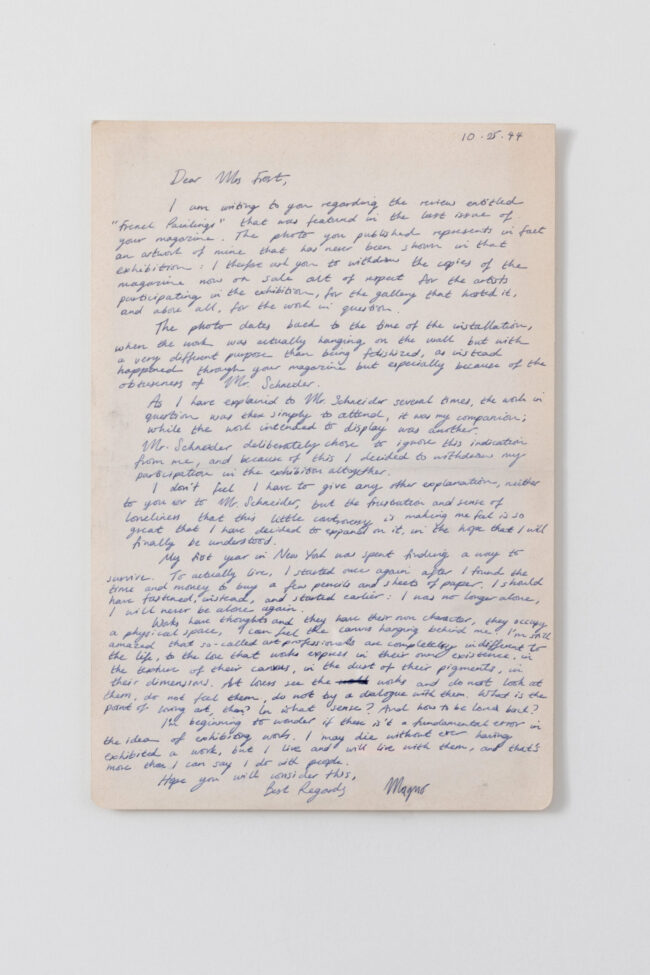 10·25·44
Dear Mrs Frost,
I am writing to you regarding the review entitled
"French Paintings" that was featured in the last issue of
your magazine. The photo you published represents in fact
an artwork of mine that has never been shown in that
exhibition: I ask you to withdraw the copies of the
magazine now on sale out of respect for the artists
participating in the exhibition, for the gallery that hosted it,
and above all, for the work in question.
The photo dates back to the time of the installation,
when the work was actually hanging on the wall but with
a very different purpose than being fetishized, as instead
happened through your magazine but especially because of the
obtuseness of Mr. Schneider.
As I have explained to Mr. Schneider several times, the work in
question was there simply to attend, it was my companion;
while the work intended to display was another.
Mr. Schneider deliberately chose to ignore this indication
from me, and because of this I decided to withdraw my
participation in the exhibition altogether.
I don't feel I have to give any other explanation, neither
to you nor to Mr. Schneider, but the frustration and sense of
loneliness that this little controversy is making me feel is so
great that I have decided to expand on it, in the hope that I will
finally be understood.
My first year in New York was spent finding a way to
survive. To actually live, I started once again after I found the
time and money to buy a few pencils and sheets of paper. I should
have fastened, instead, and started earlier: I was no longer alone,
I will never be alone again.
Works have thoughts and they have their own character, they occupy
a physical space, I can feel the canvas hanging behind me. I'm still
amazed that so-called art professionals are completely indifferent to
the life, to the love that works express in their own existence, in
the texture of their canvas, in the dust of their pigments, in
their dimensions. Art lovers see the works and do not look at
them, do not feel them, do not try a dialogue with them. What is the
point of loving art, then? In what sense? And how to be loved back?
I'm beginning to wonder if there isn't a fundamental error in
the idea of exhibiting works. I may die without ever having
exhibited a work, but I live and will live with them, and that's
more than I can say I do with people.
Hope you will consider this,
Best Regards Magno